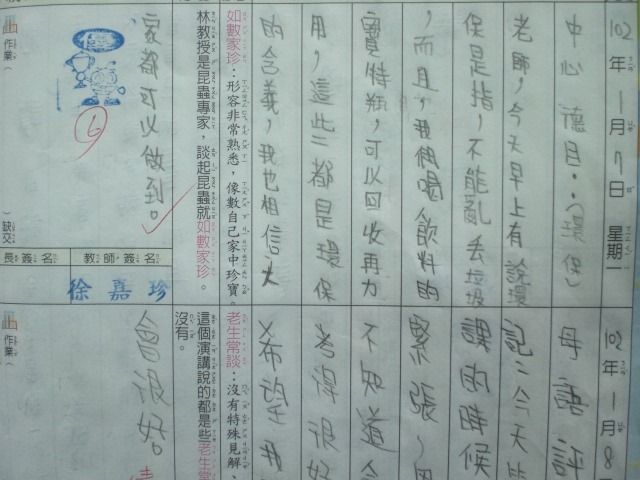 102年1月7日星期一
中心德目：（環保）
老師，今天早上有說環
保是指，不能亂丟垃圾
，而且，我們喝飲料的
寶特瓶，可以回收再力
用，這些都是環保
的含義，我也相信大
家都可以做到。
如數家珍：形容非常熟悉，像數自己家中珍寶。
林教授是昆蟲專家，談起昆蟲就如數家珍。
作業
缺交
長簽名
教師簽名
徐嘉珍
102年1月8
母語評
記：今天
課的時候
緊張，因
不知道今
考得很好
希望我
會很好。
老生常談：沒有特殊見解、
這個演講說的都是些老生常
沒有。
作業